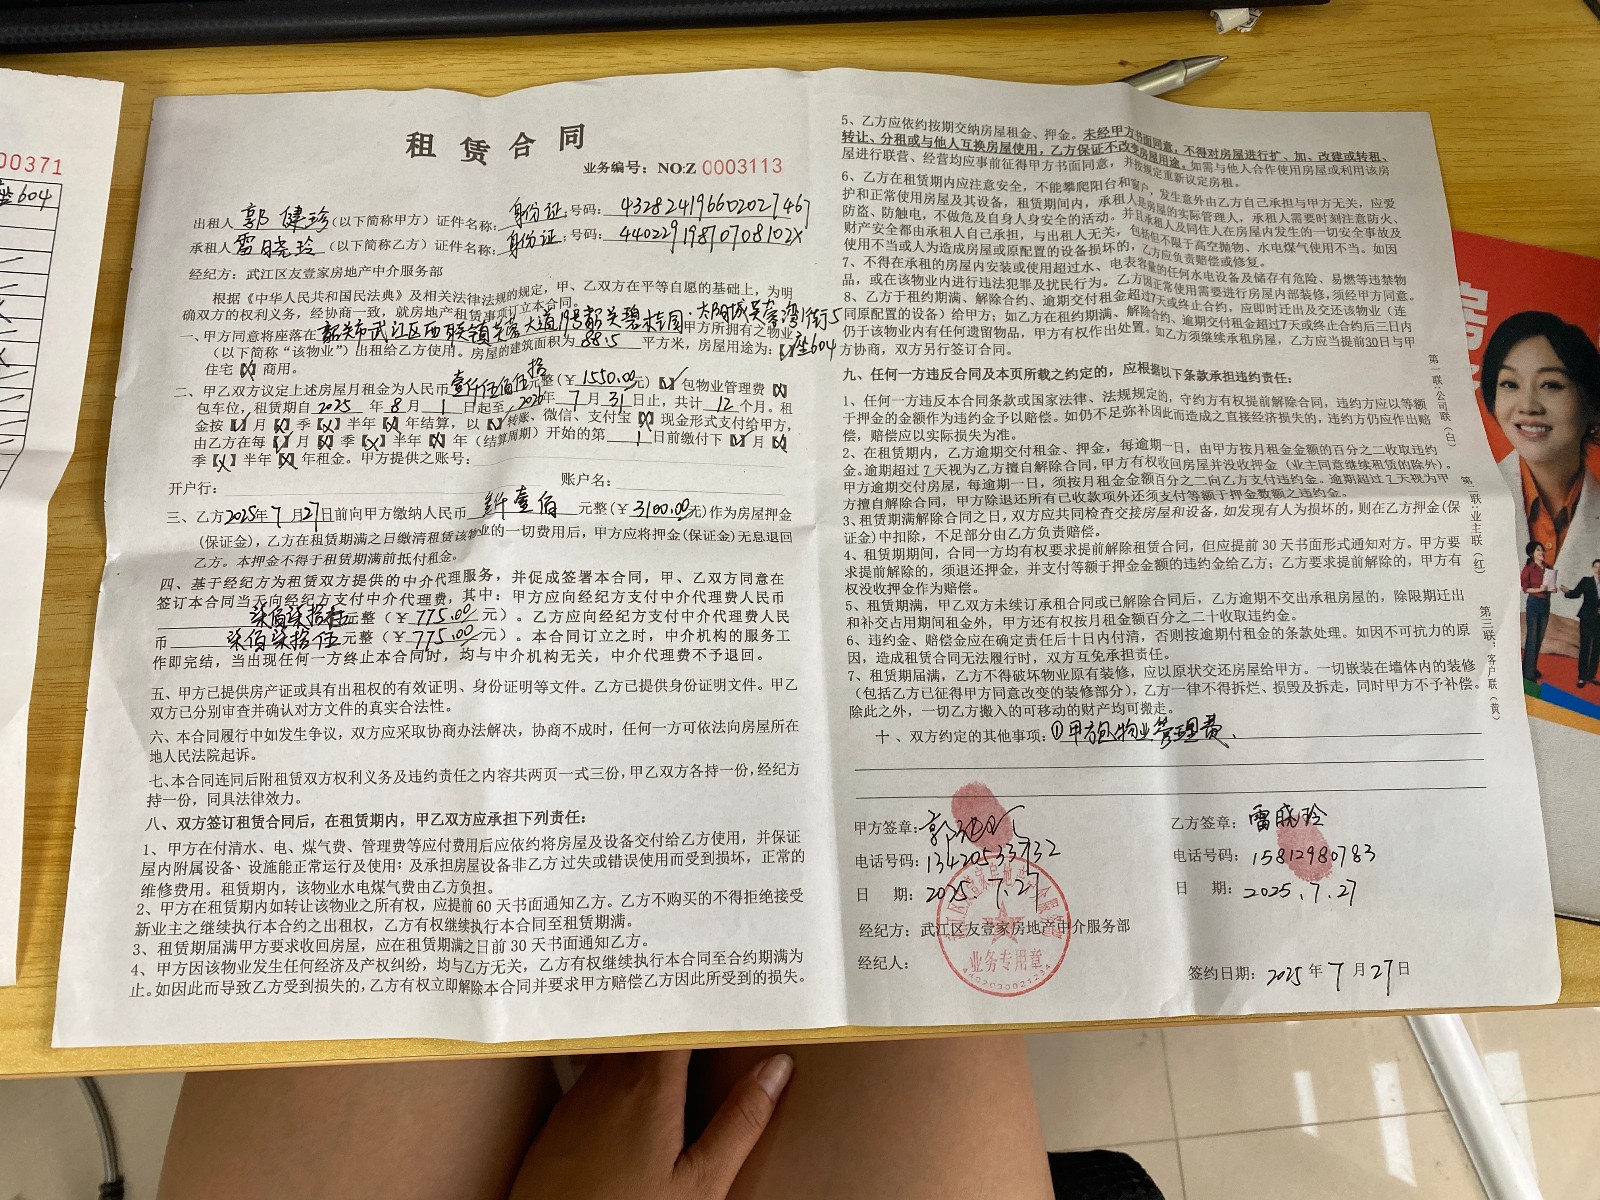 00371
座604
租赁合同
业务编号：NO:Z 0003113
出租人郭健珍(以下简称甲方）证件名称：身份证；号码：432824196602027467
承租人雷晓玲（以下简称乙方）证件名称：身份证；号码：44022919870708102X
经纪方：武江区友壹家房地产中介服务部
根据《中华人民共和国民法典》及相关法律法规的规定，甲、乙双方在平等自愿的基础上，为明
确双方的权利义务，经协商一致，就房地产租赁事项订立本合同。
一、甲方同意将座落在韶关市武江区西联镇芙蓉大道19号韶关碧桂园·太阳城芙蓉湾街5座604甲方所拥有之物业
（以下简称“该物业”）出租给乙方使用。房屋的建筑面积为88.5平方米，房屋用途为：【√】
住宅【×】商用。
二、甲乙双方议定上述房屋月租金为人民币壹仟伍佰伍拾元整（￥1550.00元）【√】包物业管理费【×】
包车位，租赁期自2025年8月1日起至2026年7月31日止，共计12个月。租
金按【√】月【×】季【×】半年【×】年结算，以【√】转账、微信、支付宝【×】现金形式支付给甲方，
由乙方在每【√】月【×】季【×】半年【×】年（结算周期）开始的第1日前缴付下【√】月【×】
季【×】半年【×】年租金。甲方提供之账号：
开户行： 账户名：
三、乙方2025年7月27日前向甲方缴纳人民币叁仟壹佰元整（￥3100.00元)作为房屋押金
(保证金)，乙方在租赁期满之日缴清租赁该物业的一切费用后，甲方应将押金(保证金)无息退回
乙方。本押金不得于租赁期满前抵付租金。
四、基于经纪方为租赁双方提供的中介代理服务，并促成签署本合同，甲、乙双方同意在
签订本合同当天向经纪方支付中介代理费，其中：甲方应向经纪方支付中介代理费人民币
柒佰柒拾伍元整（￥775.00元）。乙方应向经纪方支付中介代理费人民
币柒佰柒拾伍元整（￥775.00元）。本合同订立之时，中介机构的服务工
作即完结，当出现任何一方终止本合同时，均与中介机构无关，中介代理费不予退回。
五、甲方已提供房产证或具有出租权的有效证明、身份证明等文件。乙方已提供身份证明文件。甲乙
双方已分别审查并确认对方文件的真实合法性。
六、本合同履行中如发生争议，双方应采取协商办法解决，协商不成时，任何一方可依法向房屋所在
地人民法院起诉。
七、本合同连同后附租赁双方权利义务及违约责任之内容共两页一式三份，甲乙双方各持一份，经纪方
持一份，同具法律效力。
八、双方签订租赁合同后，在租赁期内，甲乙双方应承担下列责任：
1、甲方在付清水、电、煤气费、管理费等应付费用后应依约将房屋及设备交付给乙方使用，并保证
屋内附属设备、设施能正常运行及使用；及承担房屋设备非乙方过失或错误使用而受到损坏，正常的
维修费用。租赁期内，该物业水电煤气费由乙方负担。
2、甲方在租赁期内如转让该物业之所有权，应提前60天书面通知乙方。乙方不购买的不得拒绝接受
新业主之继续执行本合约之出租权，乙方有权继续执行本合同至租赁期满。
3、租赁期届满甲方要求收回房屋，应在租赁期满之日前30天书面通知乙方。
4、甲方因该物业发生任何经济及产权纠纷，均与乙方无关，乙方有权继续执行本合同至合约期满为
止。如因此而导致乙方受到损失的，乙方有权立即解除本合同并要求甲方赔偿乙方因此所受到的损失。
5、乙方应依约按期交纳房屋租金、押金。未经甲方书面同意，不得对房屋进行扩、加、改建或转租、
转让、分租或与他人互换房屋使用，乙方保证不改变房屋用途。如需与他人合作使用房屋或利用该房
屋进行联营、经营均应事前征得甲方书面同意，并按规定重新议定房租。
6、乙方在租赁期内应注意安全，不能攀爬阳台和窗户，发生意外由乙方自己承担与甲方无关，应爱
护和正常使用房屋及其设备，租赁期间内，承租人是房屋的实际管理人，承租人需要时刻注意防火、
防盗、防触电，不做危及自身人身安全的活动。并且承租人及同住人在房屋内发生的一切安全事故及
财产安全都由承租人自己承担，与出租人无关，包括但不限于高空抛物、水电煤气使用不当。如因
使用不当或人为造成房屋或原配置的设备损坏的，乙方应负责赔偿或修复。
7、不得在承租的房屋内安装或使用超过水、电表容量的任何水电设备及储存有危险、易燃等违禁物
品，或在该物业内进行违法犯罪及扰民行为。乙方因正常使用需要进行房屋内部装修，须经甲方同意。
8、乙方于租约期满、解除合约、逾期交付租金超过7天或终止合约，应即时迁出及交还该物业（连
同原配置的设备）给甲方；如乙方在租约期满、解除合约、逾期交付租金超过7天或终止合约后三日内
仍于该物业内有任何遗留物品，甲方有权作出处置。如乙方须继续承租房屋，乙方应当提前30日与甲
方协商，双方另行签订合同。
九、任何一方违反合同及本页所载之约定的，应根据以下条款承担违约责任：
1、任何一方违反本合同条款或国家法律、法规规定的，守约方有权提前解除合同，违约方应以等额
于押金的金额作为违约金予以赔偿。如仍不足弥补因此而造成之直接经济损失的，违约方仍应作出赔
偿，赔偿应以实际损失为准。
2、在租赁期内，乙方逾期交付租金、押金，每逾期一日，由甲方按月租金金额的百分之二收取违约
金。逾期超过7天视为乙方擅自解除合同，甲方有权收回房屋并没收押金（业主同意继续租赁的除外）。
甲方逾期交付房屋，每逾期一日，须按月租金金额百分之二向乙方支付违约金。逾期超过7天视为甲
方擅自解除合同，甲方除退还所有已收款项外还须支付等额于押金数额之违约金。
3、租赁期满解除合同之日，双方应共同检查交接房屋和设备，如发现有人为损坏的，则在乙方押金(保
证金)中扣除，不足部分由乙方负责赔偿。
4、租赁期期间，合同一方均有权要求提前解除租赁合同，但应提前30天书面形式通知对方。甲方要
求提前解除的，须退还押金，并支付等额于押金金额的违约金给乙方；乙方要求提前解除的，甲方有
权没收押金作为赔偿。
5、租赁期满，甲乙双方未续订承租合同或已解除合同后，乙方逾期不交出承租房屋的，除限期迁出
和补交占用期间租金外，甲方还有权按月租金额百分之二十收取违约金。
6、违约金、赔偿金应在确定责任后十日内付清，否则按逾期付租金的条款处理。如因不可抗力的原
因，造成租赁合同无法履行时，双方互免承担责任。
7、租赁期届满，乙方不得破坏物业原有装修，应以原状交还房屋给甲方。一切嵌装在墙体内的装修
（包括乙方已征得甲方同意改变的装修部分），乙方一律不得拆烂、损毁及拆走，同时甲方不予补偿。
除此之外，一切乙方搬入的可移动的财产均可搬走。
十、双方约定的其他事项：①甲方包物业管理费、
甲方签章： 乙方签章：雷晓玲
电话号码：13420533732 电话号码：15812980783
日 期：2025.7.27 日 期：2025.7.27
经纪方：武江区友壹家房地产中介服务部
经纪人：
业务专用章
签约日期：2025年7月27日
第一联：公司联（白）
第二联：业主联（红）
第三联：客户联（黄）
房